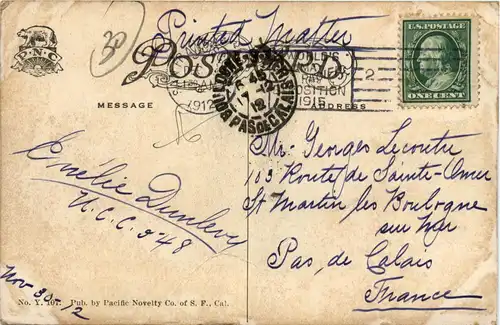 Printed Matter
P.N.C.
POST CARD
U.S. POSTAGE
ONE CENT
1912
EXPOSITION
1915
BOULOGNE-SUR-MER
PAS DE CALAIS
12
MESSAGE
ADDRESS
Mr. Georges Lecoutre
103 Route de Sainte-Omer
St Martin les Boulogne
sur Mer
Pas de Calais
France
Emélie Dunlevy
U.C.C. 548
Nov 30-12
No. Y. 107. Pub. by Pacific Novelty Co. of S. F., Cal.